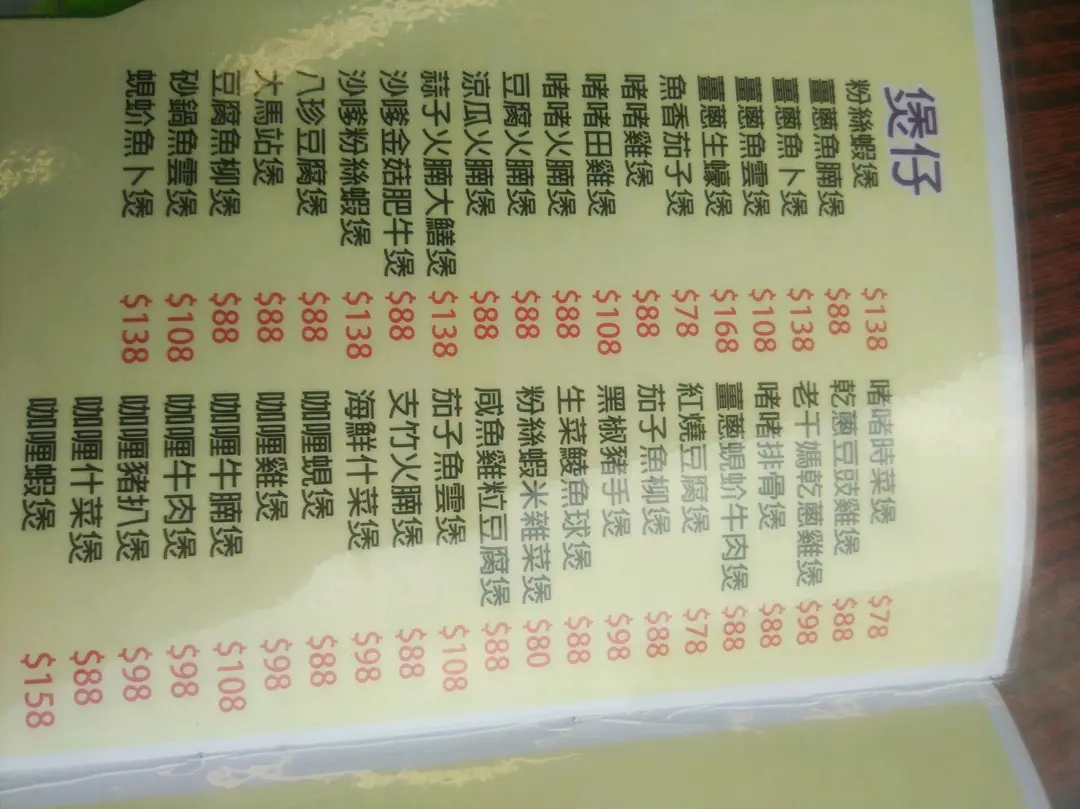 煲仔
粉絲蝦煲 $138
薑蔥魚腩煲 $88
薑蔥魚卜煲 $138
薑蔥魚雲煲 $108
薑蔥生蠔煲 $168
魚香茄子煲 $78
啫啫雞煲 $88
啫啫田雞煲 $108
啫啫火腩煲 $88
豆腐火腩煲 $88
涼瓜火腩煲 $88
蒜子火腩大鱔煲 $138
沙嗲金菇肥牛煲 $88
沙嗲粉絲蝦煲 $138
八珍豆腐煲 $88
大馬站煲 $88
豆腐魚柳煲 $88
砂鍋魚雲煲 $108
蜆蚧魚卜煲 $138
啫啫時菜煲 $78
乾蔥豆豉雞煲 $88
老干媽乾蔥雞煲 $98
啫啫排骨煲 $88
薑蔥蜆蚧牛肉煲 $88
紅燒豆腐煲 $78
茄子魚柳煲 $88
黑椒豬手煲 $98
生菜鯪魚球煲 $88
粉絲蝦米雜菜煲 $80
咸魚雞粒豆腐煲 $88
茄子魚雲煲 $108
支竹火腩煲 $88
海鮮什菜煲 $98
咖喱蜆煲 $88
咖喱雞煲 $98
咖喱牛腩煲 $108
咖喱牛肉煲 $98
咖喱豬扒煲 $98
咖喱什菜煲 $88
咖喱蝦煲 $158